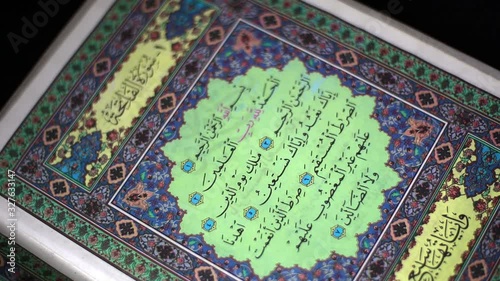 سُورَةُ الْفَاتِحَةِ
بِسْمِ اللَّهِ الرَّحْمَٰنِ الرَّحِيمِ
الْحَمْدُ لِلَّهِ رَبِّ الْعَالَمِينَ
الرَّحْمَٰنِ الرَّحِيمِ مَالِكِ يَوْمِ الدِّينِ
إِيَّاكَ نَعْبُدُ وَإِيَّاكَ نَسْتَعِينُ اهْدِنَا
الصِّرَاطَ الْمُسْتَقِيمَ صِرَاطَ الَّذِينَ أَنْعَمْتَ
عَلَيْهِمْ غَيْرِ الْمَغْضُوبِ عَلَيْهِمْ
وَلَا الضَّالِّينَ
Adobe Stock | #327633147